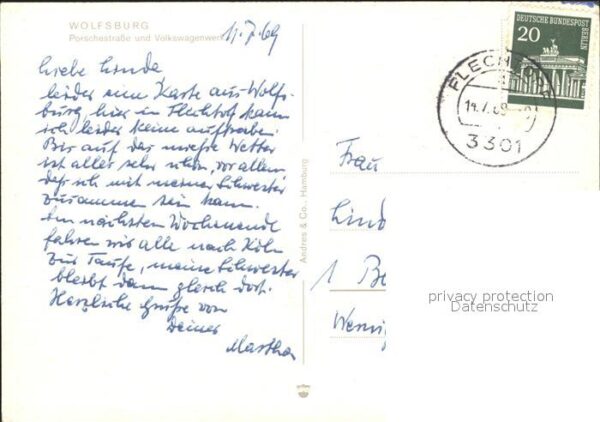 WOLFSBURG
Porschestraße und Volkswagenwerk
11.7.69
Liebe Linda
leider eine Karte aus Wolfs-
burg, hier in Flechtorf kann
ich leider keine auftreiben.
Bis auf das nasse Wetter
ist alles sehr schön, vor allem
daß ich mit meiner Schwester
zusammen sein kann.
Am nächsten Wochenende
fahren wir alle nach Köln
zur Taufe, meine Schwester
bleibt dann gleich dort.
Herzliche Grüße von
Deiner
Martha
Andres & Co., Hamburg
DEUTSCHE BUNDESPOST
BERLIN
20
FLECHTORF
14.7.69
3301
Frau
Lind
1 Be
privacy protection
Datenschutz